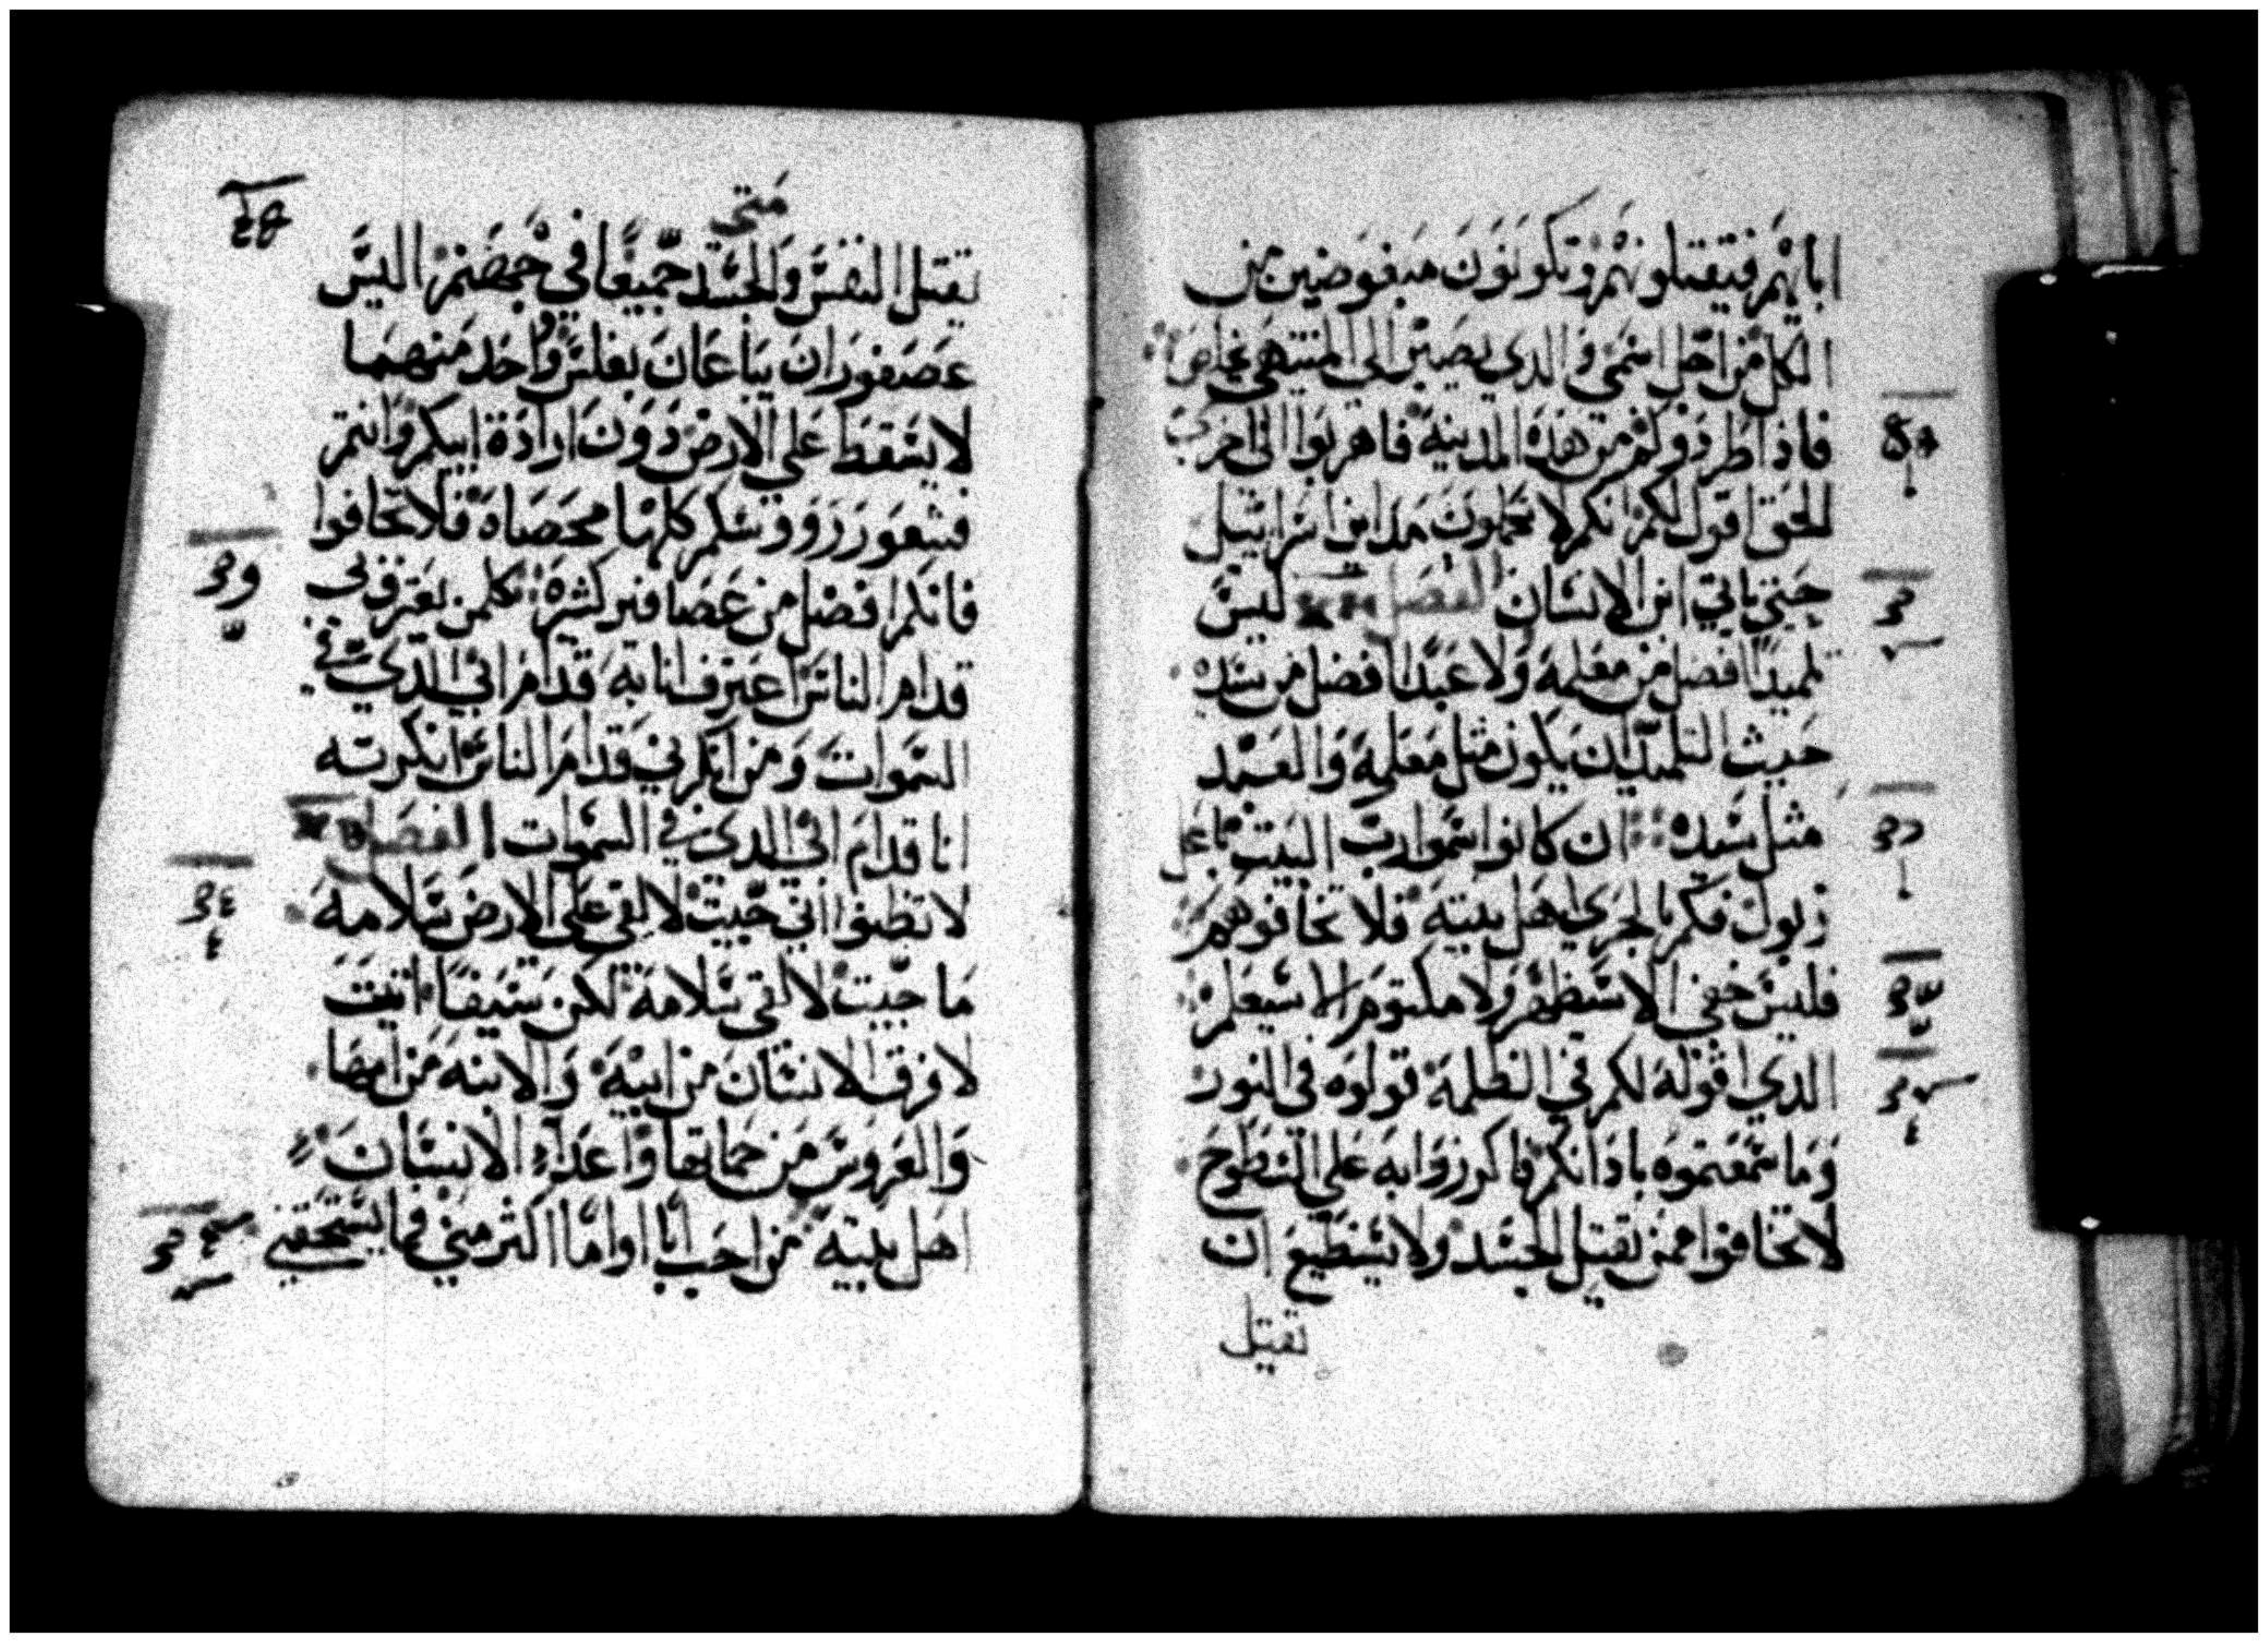 ابايهم فيقتلونهم وتكونون مبغوضين من
الكل من اجل اسمى والدي يصبر الي المنتهي يخلص
فاذا طردوكم من هذه المدينة فاهربوا الى اخرى
الحق اقول لكم انكم لا تكملون مداين اسراييل
حتي ياتي ابن الانسان الفصل ليس
تلميدا افضل من معلمه ولا عبدا افضل من سيده
حيث التلميد ان يكون مثل معلمه والعبد
مثل سيده ان كانوا سموا رب البيت باعل
زبول فكم بالجري اهل بيته فلا تخافوهم
فليس خفي الا سيظهر ولا مكتوم الا سيعلم
الدي اقوله لكم في الظلمة قولوه في النور
وما سمعتموه باذانكم فاكرزوا به على السطوح
لا تخافوا ممن يقتل الجسد ولا يستطيع ان
تقتل
متى
تقتل النفس والجسد جميعا في جهنم اليس
عصفوران يباعان بفلس واحد منهما
لا يسقط على الارض دون ارادة ابيكم وانتم
فشعور رووسكم كلها محصاه فلا تخافوا
فانكم افضل من عصافير كثيره كلمن يعترف بى
قدام الناس اعترف انا به قدام ابي الدي في
السموات ومن انكرني قدام الناس انكرته
انا قدام ابي الدي في السموات الفصل
لا تظنوا اني جيت لالقي على الارض سلامه
ما جيت لالقى سلامة لكن سيفا اتيت
لافرق الانسان من ابيه والابنه من امها
والعروس من حماتها واعداء الانسان
اهل بيته من احب ابا او اما اكثر مني فما يستحقني